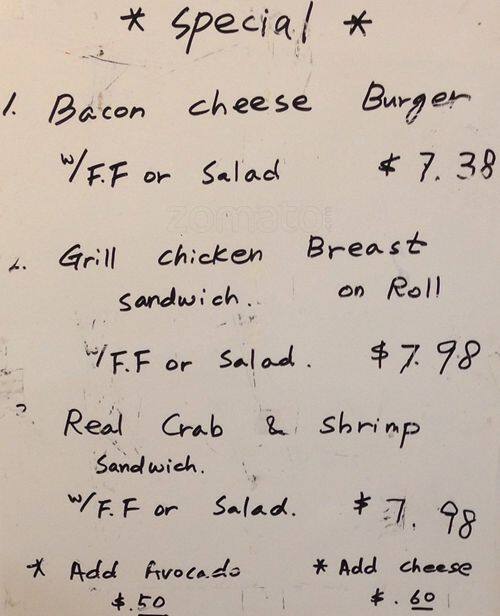 * Special *
1. Bacon cheese Burger
w/F.F or Salad $ 7.38
zomato
2. Grill chicken Breast
sandwich. on Roll
w/F.F or Salad. $ 7.98
3 Real Crab & shrimp
Sandwich.
w/F.F or Salad. $ 7.98
* Add Avocado * Add cheese
$.50 $.60